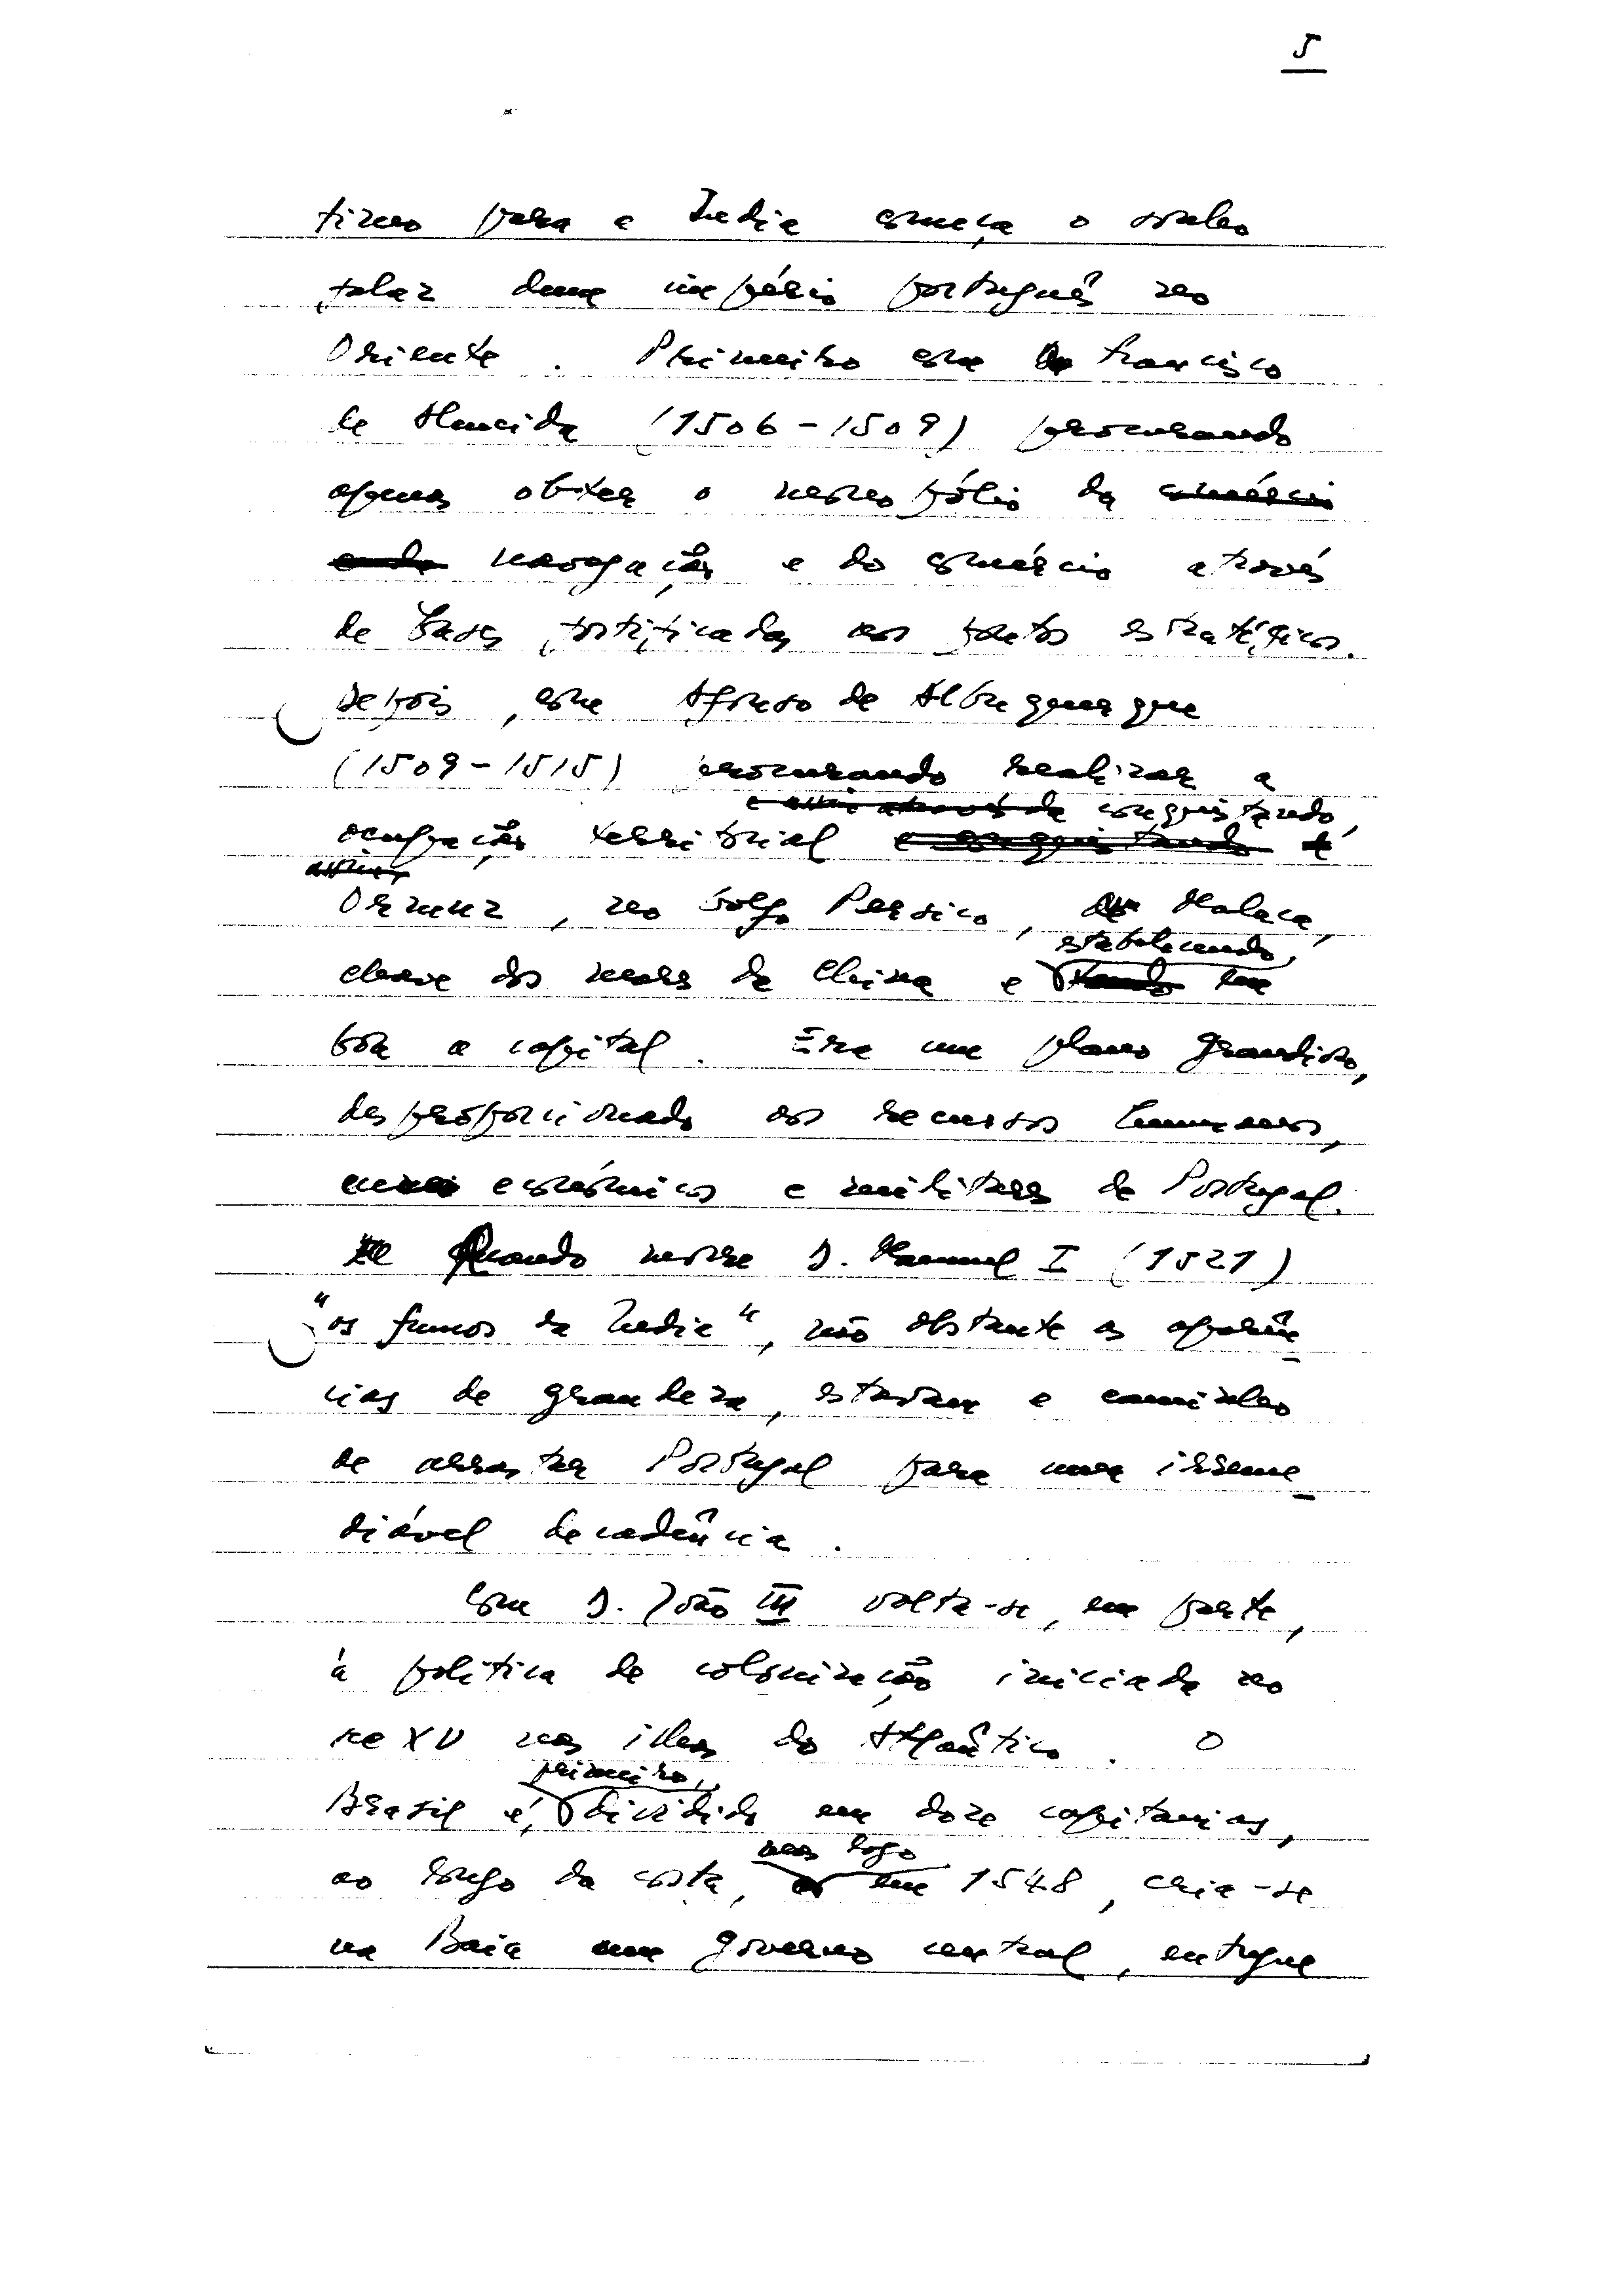 5
timo para a India começa o sonho
falaz dum império português no
Oriente. Primeiro com Francisco
de Almeida (1506-1509) procurando
apenas obter o monopólio da comércio
navegação e do comércio através
de bases fortificadas nos pontos estratégicos.
Depois, com Afonso de Albuquerque
(1509-1515) procurando realizar a
e assim através da conquistando,
ocupação territorial e conquistando
assim
Ormuz, no Golfo Persico, Malaca,
estabelecendo,
chave dos mares da China e em
Goa a capital. Era um plano grandioso,
desproporcionado aos recursos humanos,
económicos e militares de Portugal.
Quando morre D. Manuel I (1521)
"os fumos da India", não obstante as aparên
cias de grandeza, estavam a caminho
de arrastar Portugal para uma irreme
diável decadência.
Com D. João III volta-se, em parte,
à política de colonização iniciada no
sec XV nas ilhas do Atlântico. O
primeiro,
Brasil é, dividido em doze capitanias,
mas logo
ao longo da costa, em 1548, cria-se
na Baia um governo central, entregue